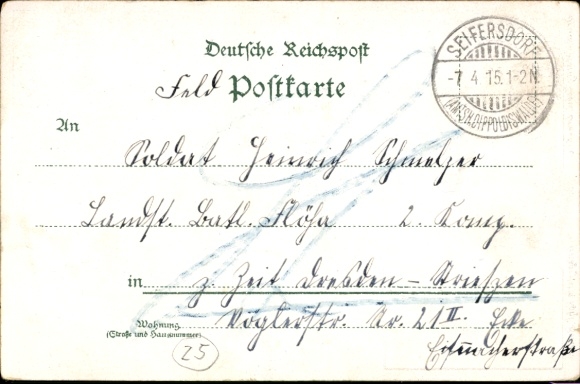 Deutsche Reichspost
Feld Postkarte
SEIFERSDORF
-7 4 15.1-2N.
(AMTSH.DIPPOLDISWALDE)
An
Soldat Heinrich Schmelzer
Landst. Batl. Flöha 2. Komp.
in z. Zeit Dresden - Striesen
Wohnung
(Straße und Hausnummer)
Voglerstr. Nr. 21 II. Ecke
25